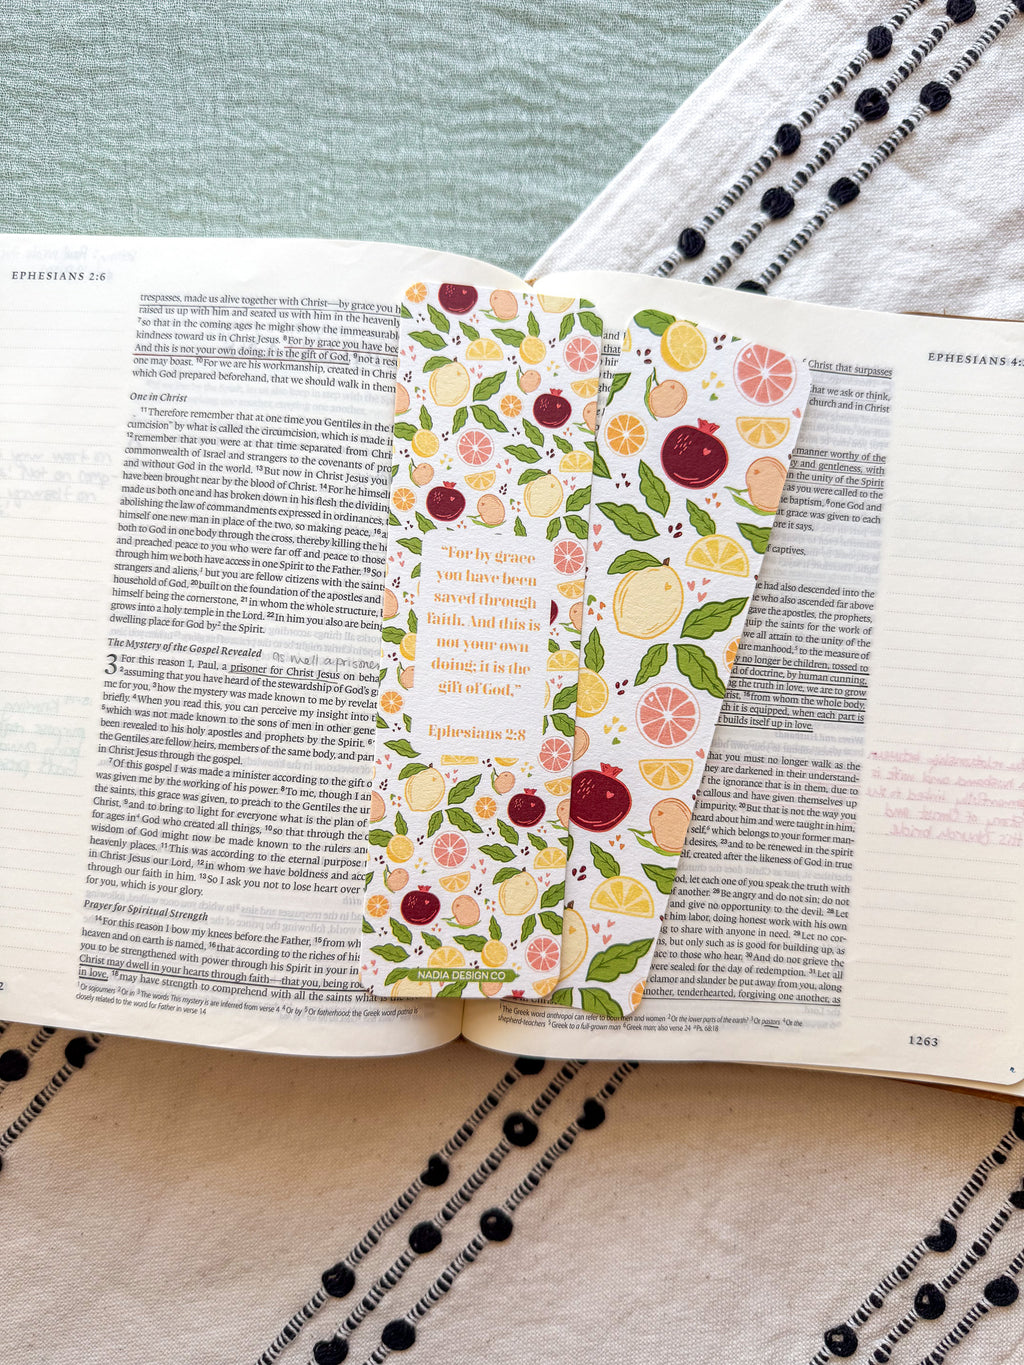 EPHESIANS 2:6
trespasses, made us alive together with Christ—by grace you h
raised us up with him and seated us with him in the heavenly
7 so that in the coming ages he might show the immeasurabl
kindness toward us in Christ Jesus. 8 For by grace you have bee
And this is not your own doing; it is the gift of God, 9 not a resu
one may boast. 10 For we are his workmanship, created in Chris
which God prepared beforehand, that we should walk in them
One in Christ
11 Therefore remember that at one time you Gentiles in the
cumcision" by what is called the circumcision, which is made i
12 remember that you were at that time separated from Chri
commonwealth of Israel and strangers to the covenants of pro
and without God in the world. 13 But now in Christ Jesus you
have been brought near by the blood of Christ. 14 For he himsel
made us both one and has broken down in his flesh the dividin
abolishing the law of commandments expressed in ordinances, t
himself one new man in place of the two, so making peace, 16 a
both to God in one body through the cross, thereby killing the h
and preached peace to you who were far off and peace to those
through him we both have access in one Spirit to the Father. 19 So
strangers and aliens, but you are fellow citizens with the saint
household of God, 20 built on the foundation of the apostles and
himself being the cornerstone, 21 in whom the whole structure,
grows into a holy temple in the Lord. 22 In him you also are being
dwelling place for God by the Spirit.
The Mystery of the Gospel Revealed
as well a prisoner
3 For this reason I, Paul, a prisoner for Christ Jesus on beha
2 assuming that you have heard of the stewardship of God's g
me for you, 3 how the mystery was made known to me by revelat
briefly. 4 When you read this, you can perceive my insight into t
5 which was not made known to the sons of men in other gene
been revealed to his holy apostles and prophets by the Spirit. 6
the Gentiles are fellow heirs, members of the same body, and par
in Christ Jesus through the gospel.
7 Of this gospel I was made a minister according to the gift o
was given me by the working of his power. 8 To me, though I am
the saints, this grace was given, to preach to the Gentiles the un
Christ, 9 and to bring to light for everyone what is the plan of
for ages in God who created all things, 10 so that through the c
wisdom of God might now be made known to the rulers and
heavenly places. 11 This was according to the eternal purpose
Christ Jesus our Lord, 12 in whom we have boldness and acc
through our faith in him. 13 So I ask you not to lose heart over
for you, which is your glory.
Prayer for Spiritual Strength
14 For this reason I bow my knees before the Father, 15 from wh
heaven and on earth is named, 16 that according to the riches of hi
you to be strengthened with power through his Spirit in your in
Christ may dwell in your hearts through faith—that you, being roo
in love, 18 may have strength to comprehend with all the saints what is
1 Or sojourners 2 Or in 3 The words This mystery is are inferred from verse 4 4 Or by 5 Or fatherhood; the Greek word patria is
closely related to the word for Father in verse 14
"For by grace
you have been
saved through
faith. And this is
not your own
doing; it is the
gift of God,"
Ephesians 2:8
NADIA DESIGN CO
EPHESIANS 4:
f Christ that surpasses
hat we ask or think,
church and in Christ
manner worthy of the
y and gentleness, with
n the unity of the Spirit
as you were called to the
e baptism, 6 one God and
t grace was given to each
ore it says,
f captives,
he had also descended into the
e who also ascended far above
gave the apostles, the prophets,
uip the saints for the work of
we all attain to the unity of the
ure manhood, to the measure of
y no longer be children, tossed to
d of doctrine, by human cunning,
g the truth in love, we are to grow
t, 16 from whom the whole body,
ch it is equipped, when each part is
t builds itself up in love.
hat you must no longer walk as the
ey are darkened in their understand-
f the ignorance that is in them, due to
callous and have given themselves up
impurity. 20 But that is not the way you
eard about him and were taught in him,
self, which belongs to your former man-
desires, 23 and to be renewed in the spirit
elf, created after the likeness of God in true
od, let each one of you speak the truth with
of another. 26 Be angry and do not sin; do not
and give no opportunity to the devil. 28 Let
t him labor, doing honest work with his own
g to share with anyone in need. 29 Let no cor-
s, but only such as is good for building up, as
ace to those who hear. 30 And do not grieve the
were sealed for the day of redemption. 31 Let all
clamor and slander be put away from you, along
nother, tenderhearted, forgiving one another, as
The Greek word anthropoi can refer to both men and women 2 Or the lower parts of the earth? 3 Or pastors 4 Or the
shepherd-teachers 5 Greek to a full-grown man 6 Greek man; also verse 24 Ps. 68:18
1263